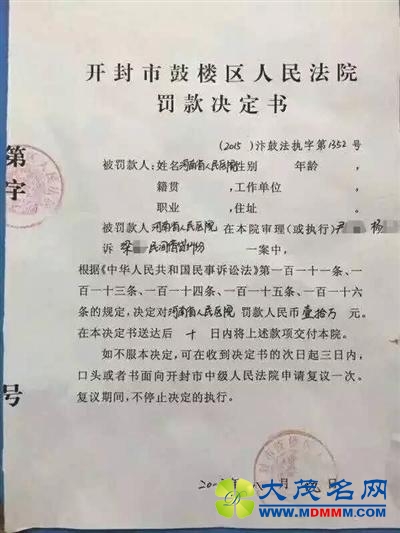 开封市鼓楼区人民法院
罚款决定书
(2015)汴鼓法执字第1352号
被罚款人:姓名河南省人民医院性别 年龄,
籍贯 ,工作单位
职业 ,住址
被罚款人河南省人民医院在本院审理(或执行)尹 杨
诉梁 民间借贷纠纷一案中,
根据《中华人民共和国民事诉讼法》第一百一十一条、一
百一十三条、一百一十四条、一百一十五条、一百一十六
条的规定,决定对河南省人民医院罚款人民币壹拾万元。
在本决定书送达后十日内将上述款项交付本院。
如不服本决定,可在收到决定书的次日起三日内,
口头或者书面向开封市中级人民法院申请复议一次。
复议期间,不停止决定的执行。
年八月 日
第
字
号
大茂名网
www.MDMMM.com